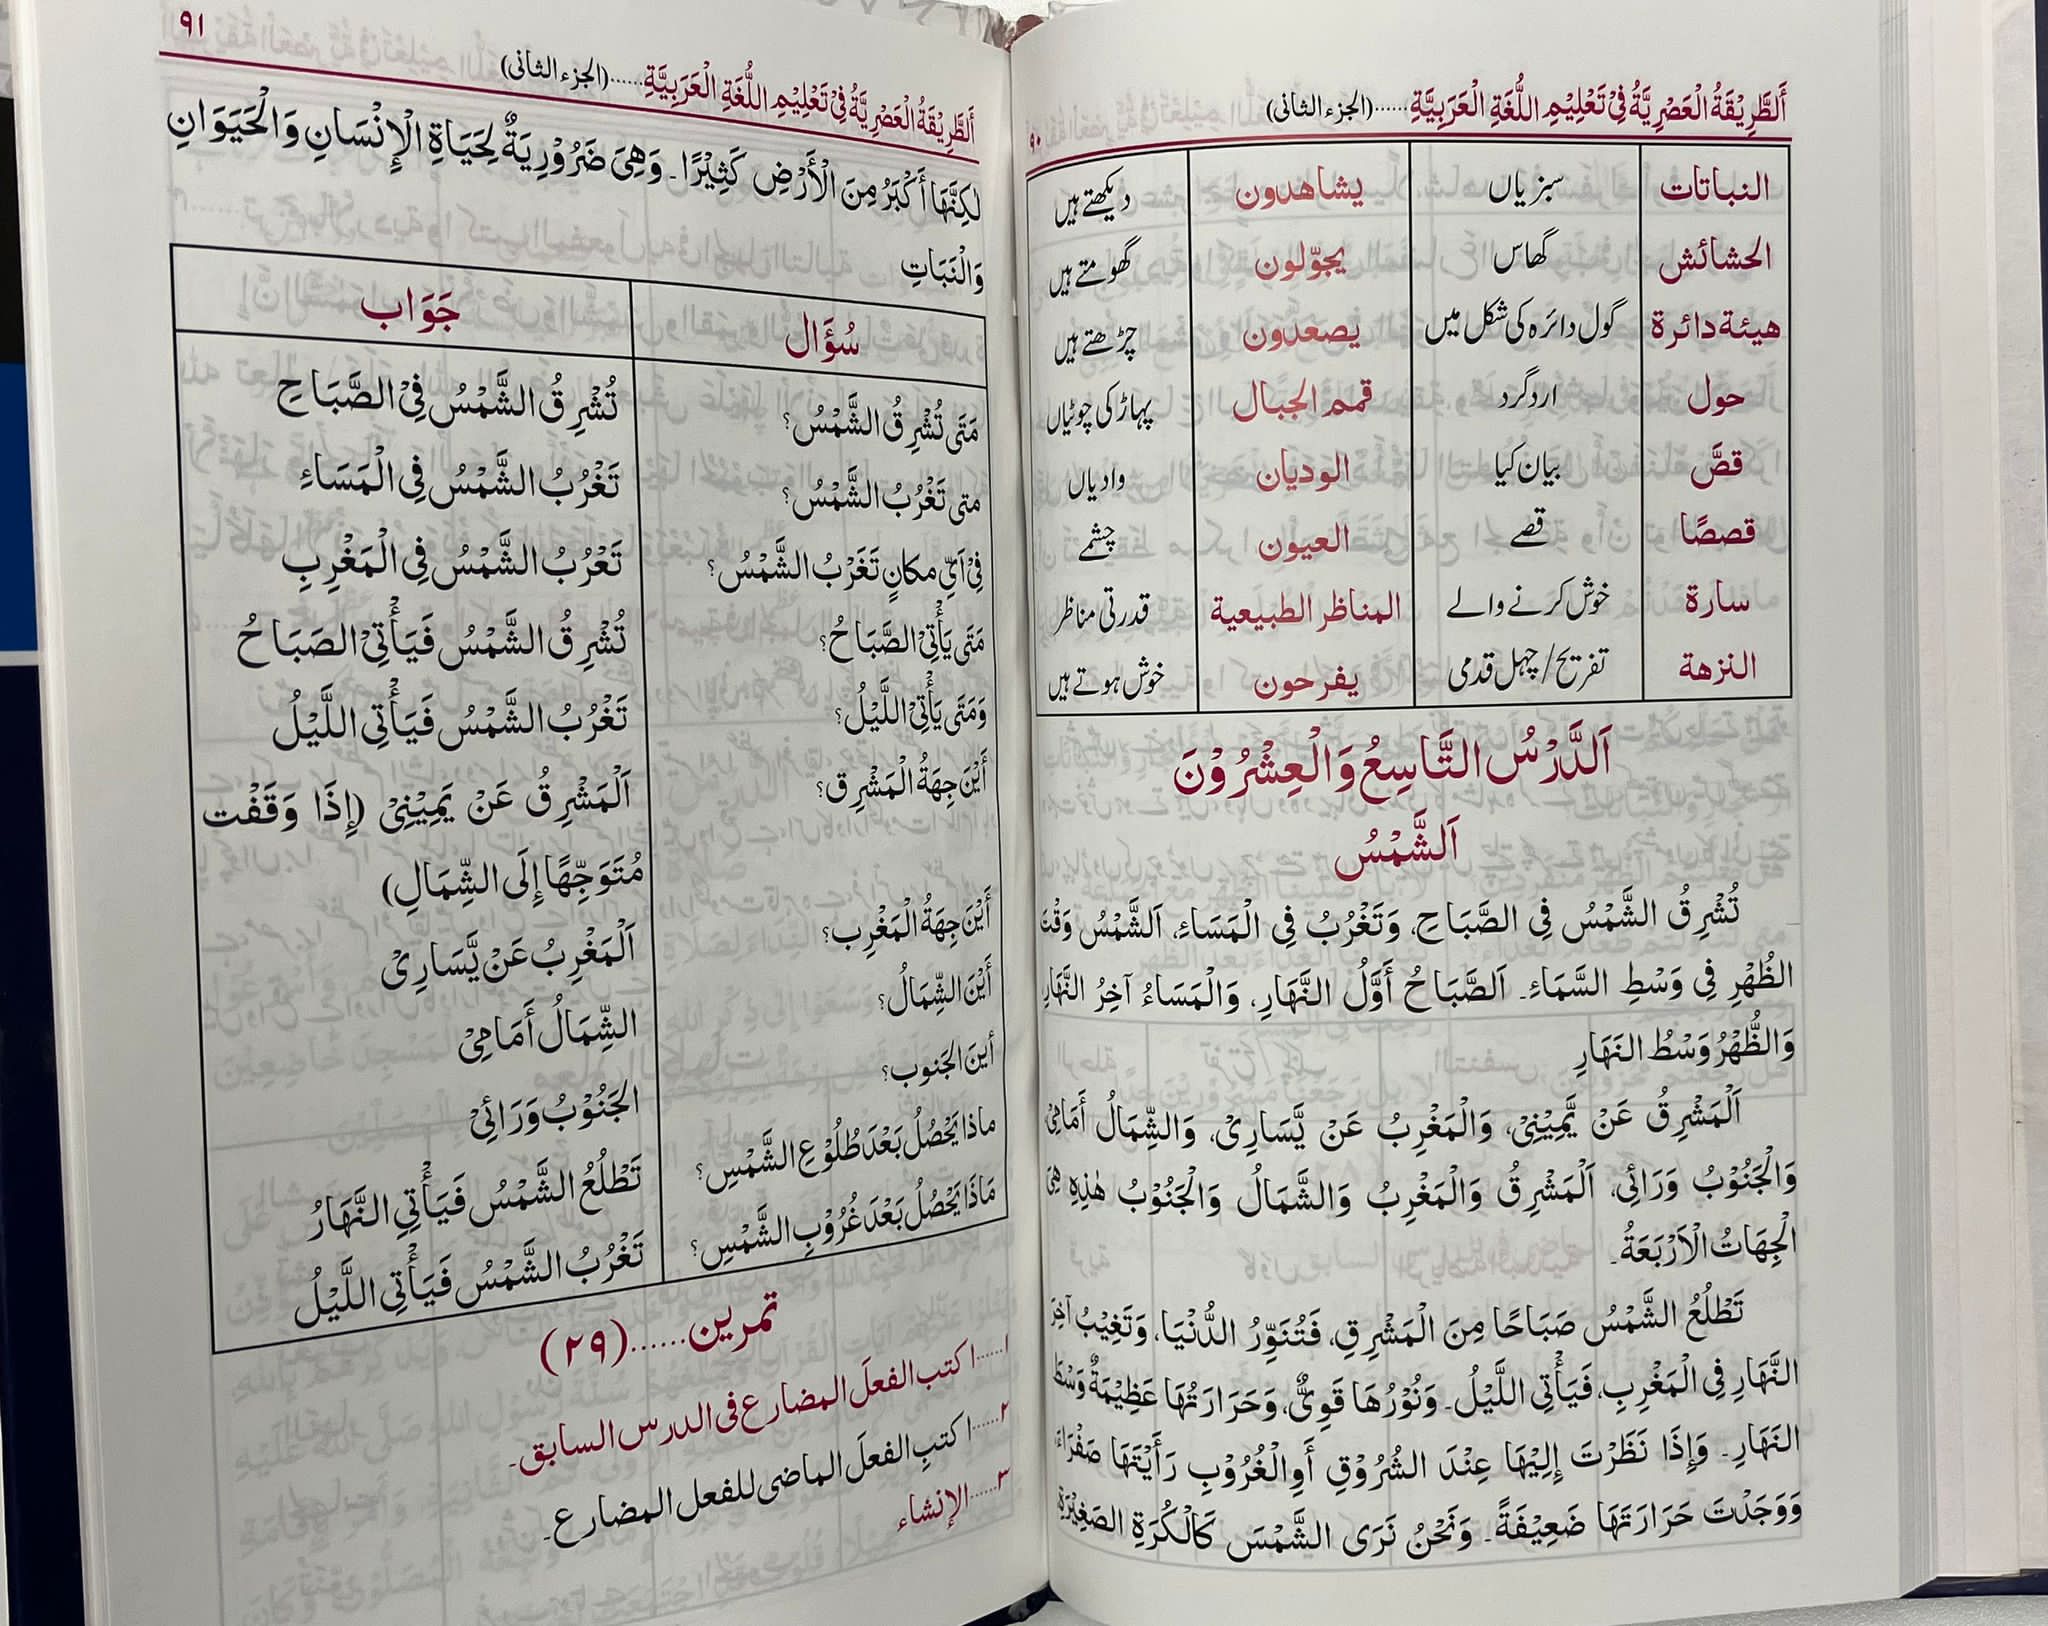 اَلطَّرِيْقَةُ الْعَصْرِيَّةُ فِيْ تَعْلِيْمِ اللُّغَةِ الْعَرَبِيَّةِ......(الجزء الثانى) ٩٠
النباتات سبزیاں یشاهدون دیکھتے ہیں
الحشائش گھاس یجوّلون گھومتے ہیں
هيئة دائرة گول دائرہ کی شکل میں یصعدون چڑھتے ہیں
حول اردگرد قمم الجبال پہاڑ کی چوٹیاں
قصَّ بیان کیا الوديان وادیاں
قصصًا قصے العيون چشمے
سارة خوش کرنے والے المناظر الطبيعية قدرتی مناظر
النزهة تفریح/چہل قدمی یفرحون خوش ہوتے ہیں
اَلدَّرْسُ التَّاسِعُ وَالْعِشْرُوْنَ
اَلشَّمْسُ
تُشْرِقُ الشَّمْسُ فِي الصَّبَاحِ، وَتَغْرُبُ فِي الْمَسَاءِ، اَلشَّمْسُ وَقْتَ
الظُهْرِ فِي وَسْطِ السَّمَاءِ۔ اَلصَّبَاحُ أَوَّلُ النَّهَارِ، وَالْمَسَاءُ آخِرُ النَّهَارِ
وَالظُّهْرُ وَسْطُ النَهَارِ
اَلْمَشْرِقُ عَنْ يَّمِيْنِيْ، وَالْمَغْرِبُ عَنْ يَّسَارِيْ، وَالشِّمَالُ أَمَامِيْ،
وَالْجَنُوْبُ وَرَائِي، اَلْمَشْرِقُ وَالْمَغْرِبُ وَالشَّمَالُ وَالْجَنُوْبُ هٰذِهِ هِيَ
الْجِهَاتُ الْاَرْبَعَةُ۔
تَطْلُعُ الشَّمْسُ صَبَاحًا مِنَ الْمَشْرِقِ، فَتُنَوِّرُ الدُّنْيَا، وَتَغِيْبُ آخِرَ
النَّهَارِ فِي الْمَغْرِبِ، فَيَأْتِي اللَّيْلُ۔ وَنُوْرُهَا قَوِيٌّ، وَحَرَارَتُهَا عَظِيْمَةٌ وَسْطَ
النَهَارِ۔ وَإِذَا نَظَرْتَ إِلَيْهَا عِنْدَ الشُرُوْقِ أَوِ الْغُرُوْبِ رَأَيْتَهَا صَفْرَاءَ،
وَوَجَدْتَ حَرَارَتَهَا ضَعِيْفَةً۔ وَنَحْنُ نَرَى الشَّمْسَ كَالْكُرَةِ الصَغِيْرَةِ،
اَلطَّرِيْقَةُ الْعَصْرِيَّةُ فِيْ تَعْلِيْمِ اللُّغَةِ الْعَرَبِيَّةِ......(الجزء الثانى) ٩١
لٰكِنَّهَا أَكْبَرُ مِنَ الْأَرْضِ كَثِيْرًا۔ وَهِيَ ضَرُوْرِيَةٌ لِحَيَاةِ الْإِنْسَانِ وَالْحَيَوَانِ
وَالْنَبَاتِ
سُؤَال جَوَاب
مَتَى تُشْرِقُ الشَّمْسُ؟ تُشْرِقُ الشَّمْسُ فِيْ الصَّبَاحِ
متى تَغْرُبُ الشَّمْسُ؟ تَغْرُبُ الشَّمْسُ فِي الْمَسَاءِ
فِيْ اَيِّ مكانٍ تَغَرْبُ الشَّمْسُ؟ تَغْرُبُ الشَّمْسُ فِي الْمَغْرِبِ
مَتَى يَأْتِيْ الصَّبَاحُ؟ تُشْرِقُ الشَّمْسُ فَيَأْتِيْ الصَبَاحُ
وَمَتَى يَأْتِيْ اللَّيْلُ؟ تَغْرُبُ الشَّمْسُ فَيَأْتِي اللَّيْلُ
أَيْنَ جِهَةُ الْمَشْرِقِ؟ اَلْمَشْرِقُ عَنْ يَمِيْنِيْ (إِذَا وَقَفْت
مُتَوَجِّهًا إِلَى الشِّمَالِ)
أَيْنَ جِهَةُ الْمَغْرِبِ؟ اَلْمَغْرِبُ عَنْ يَّسَارِيْ
أَيْنَ الشِّمَالُ؟ الشِّمَالُ أَمَامِيْ
أينَ الجَنوب؟ الجَنُوْبُ وَرَائِيْ
ماذا يَحْصُلُ بَعْدَ طُلُوْعِ الشَّمْسِ؟ تَطْلُعُ الشَّمْسُ فَيَأْتِي النَّهَارُ
مَاذَا يَحْصُلُ بَعْدَ غُرُوْبِ الشَّمْسِ؟ تَغْرُبُ الشَّمْسُ فَيَأْتِي اللَّيْلُ
تمرين......(٢٩)
١......اكتب الفعلَ المضارع فى الدرس السابق۔
٢......اكتبِ الفعلَ الماضى للفعل المضارع۔
٣......الإنشاء